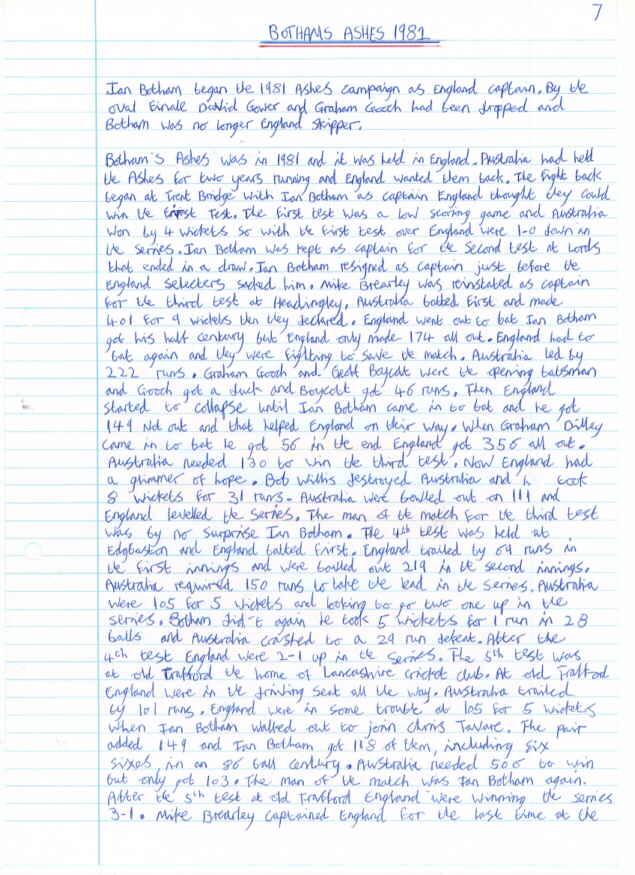 7
BOTHAMS ASHES 1981
Ian Botham began the 1981 Ashes campaign as England captain. By the
oval Finale David Gower and Graham Gooch had been dropped and
Botham was no longer England skipper.
Botham's Ashes was in 1981 and it was held in England. Australia had held
the Ashes for two years running and England wanted them back. The fight back
began at Trent Bridge with Ian Botham as captain England thought they could
win the First Test. The first test was a low scoring game and Australia
won by 4 wickets so with the first test over England were 1-0 down in
the series. Ian Botham was kept as captain for the second test at Lords
that ended in a draw. Ian Botham resigned as captain just before the
England selecters sacked him. Mike Brearley was reinstated as captain
for the third test at Headingley, Australia batted first and made
401 for 9 wickets then they declared. England went out to bat Ian Botham
got his half century but England only made 174 all out. England had to
bat again and they were fighting to save the match. Australia led by
222 runs. Graham Gooch and Geoff Boycott were the opening batsman
and Gooch got a duck and Boycott got 46 runs. Then England
started to collapse until Ian Botham came in to bat and he got
149 Not out and that helped England on their way. When Graham Dilley
came in to bat he got 56 in the end England got 356 all out.
Australia needed 130 to win the third test. Now England had
a glimmer of hope. Bob Willis destroyed Australia and h took
8 wickets for 31 runs. Australia were bowled out on 111 and
England levelled the series. The man of the match for the third test
was by no surprise Ian Botham. The 4th test was held at
Edgbaston and England batted first. England trailed by 69 runs in
the first innings and were bowled out 219 in the second innings.
Australia required 150 runs to take the lead in the series. Australia
were 105 for 5 wickets and looking to go two one up in the
series. Botham did it again he took 5 wickets for 1 run in 28
balls and Australia crashed to a 29 run defeat. After the
4th test England were 2-1 up in the series. The 5th test was
at old Trafford the home of Lancashire cricket club. At old Trafford
England were in the driving seat all the way. Australia trailed
by 101 runs. England were in some trouble at 105 for 5 wickets
when Ian Botham walked out to join Chris Tavare. The pair
added 149 and Ian Botham got 118 of them, including six
sixes, in an 86 ball century. Australia needed 506 to win
but only got 103. The man of the match was Ian Botham again.
After the 5th test at old Trafford England were winning the series
3-1. Mike Brearley captained England for the last time at the